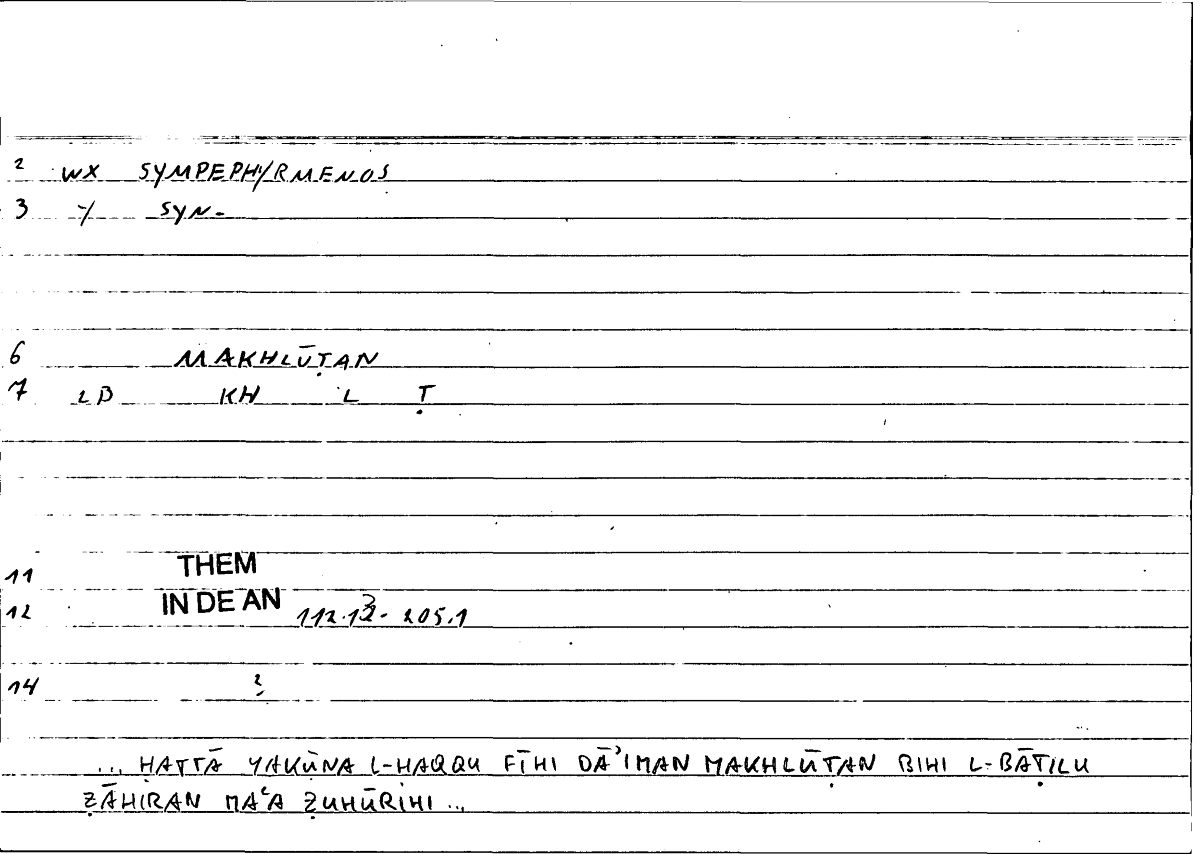 2 WX SYMPEPHYRMENOS
3 -/ SYN-
6 MAKHLŪṬAN
7 LB KH L Ṭ
11 THEM
12 IN DE AN 112.13- 205.1
14 2
... HATTĀ YAKŪNA L-HAQQU FĪHI DĀʾIMAN MAKHLŪṬAN BIHI L-BĀṬILU
ẒĀHIRAN MAʿA ẒUHŪRIHI ...